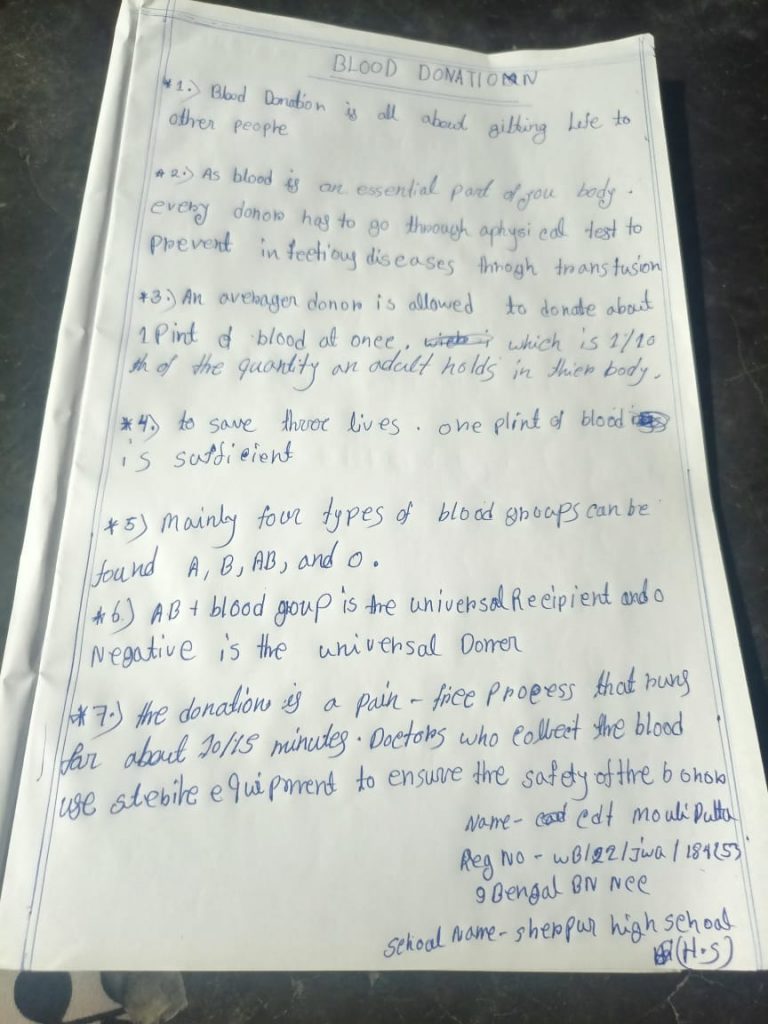 BLOOD DONATION
*1.) Blood Donation is all about gitking Life to
other people
*2.) As blood is an essential part of you body.
every donor has to go through aphysical test to
prevent infectious diseases throgh transfusion
*3.) An averager donor is allowed to donate about
1 Pint of blood at once. which is 1/10
th of the quantity an adult holds in thier body.
*4.) to save three lives. one plint of blood
is sufficient
*5) mainly four types of blood groups can be
found A, B, AB, and O.
*6.) AB+ blood group is the universal Recipient and O
Negative is the universal Donner
*7.) the donation is a pain-free process that runs
for about 10/15 minutes. Doctors who collect the blood
use sterile equipment to ensure the safety of the bonor
Name- cdt Mouli Dutta
Reg No - WB/22/JWA/184253
9 Bengal BN NCC
School Name- sherpur high school
(H.S)